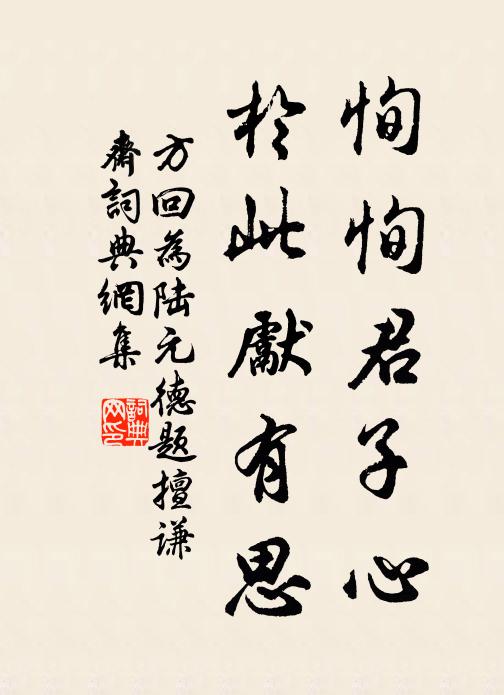 恂恂君子心
於此獻有思
方回為陸元德題擅謙
齋詞典網集
詞典網印